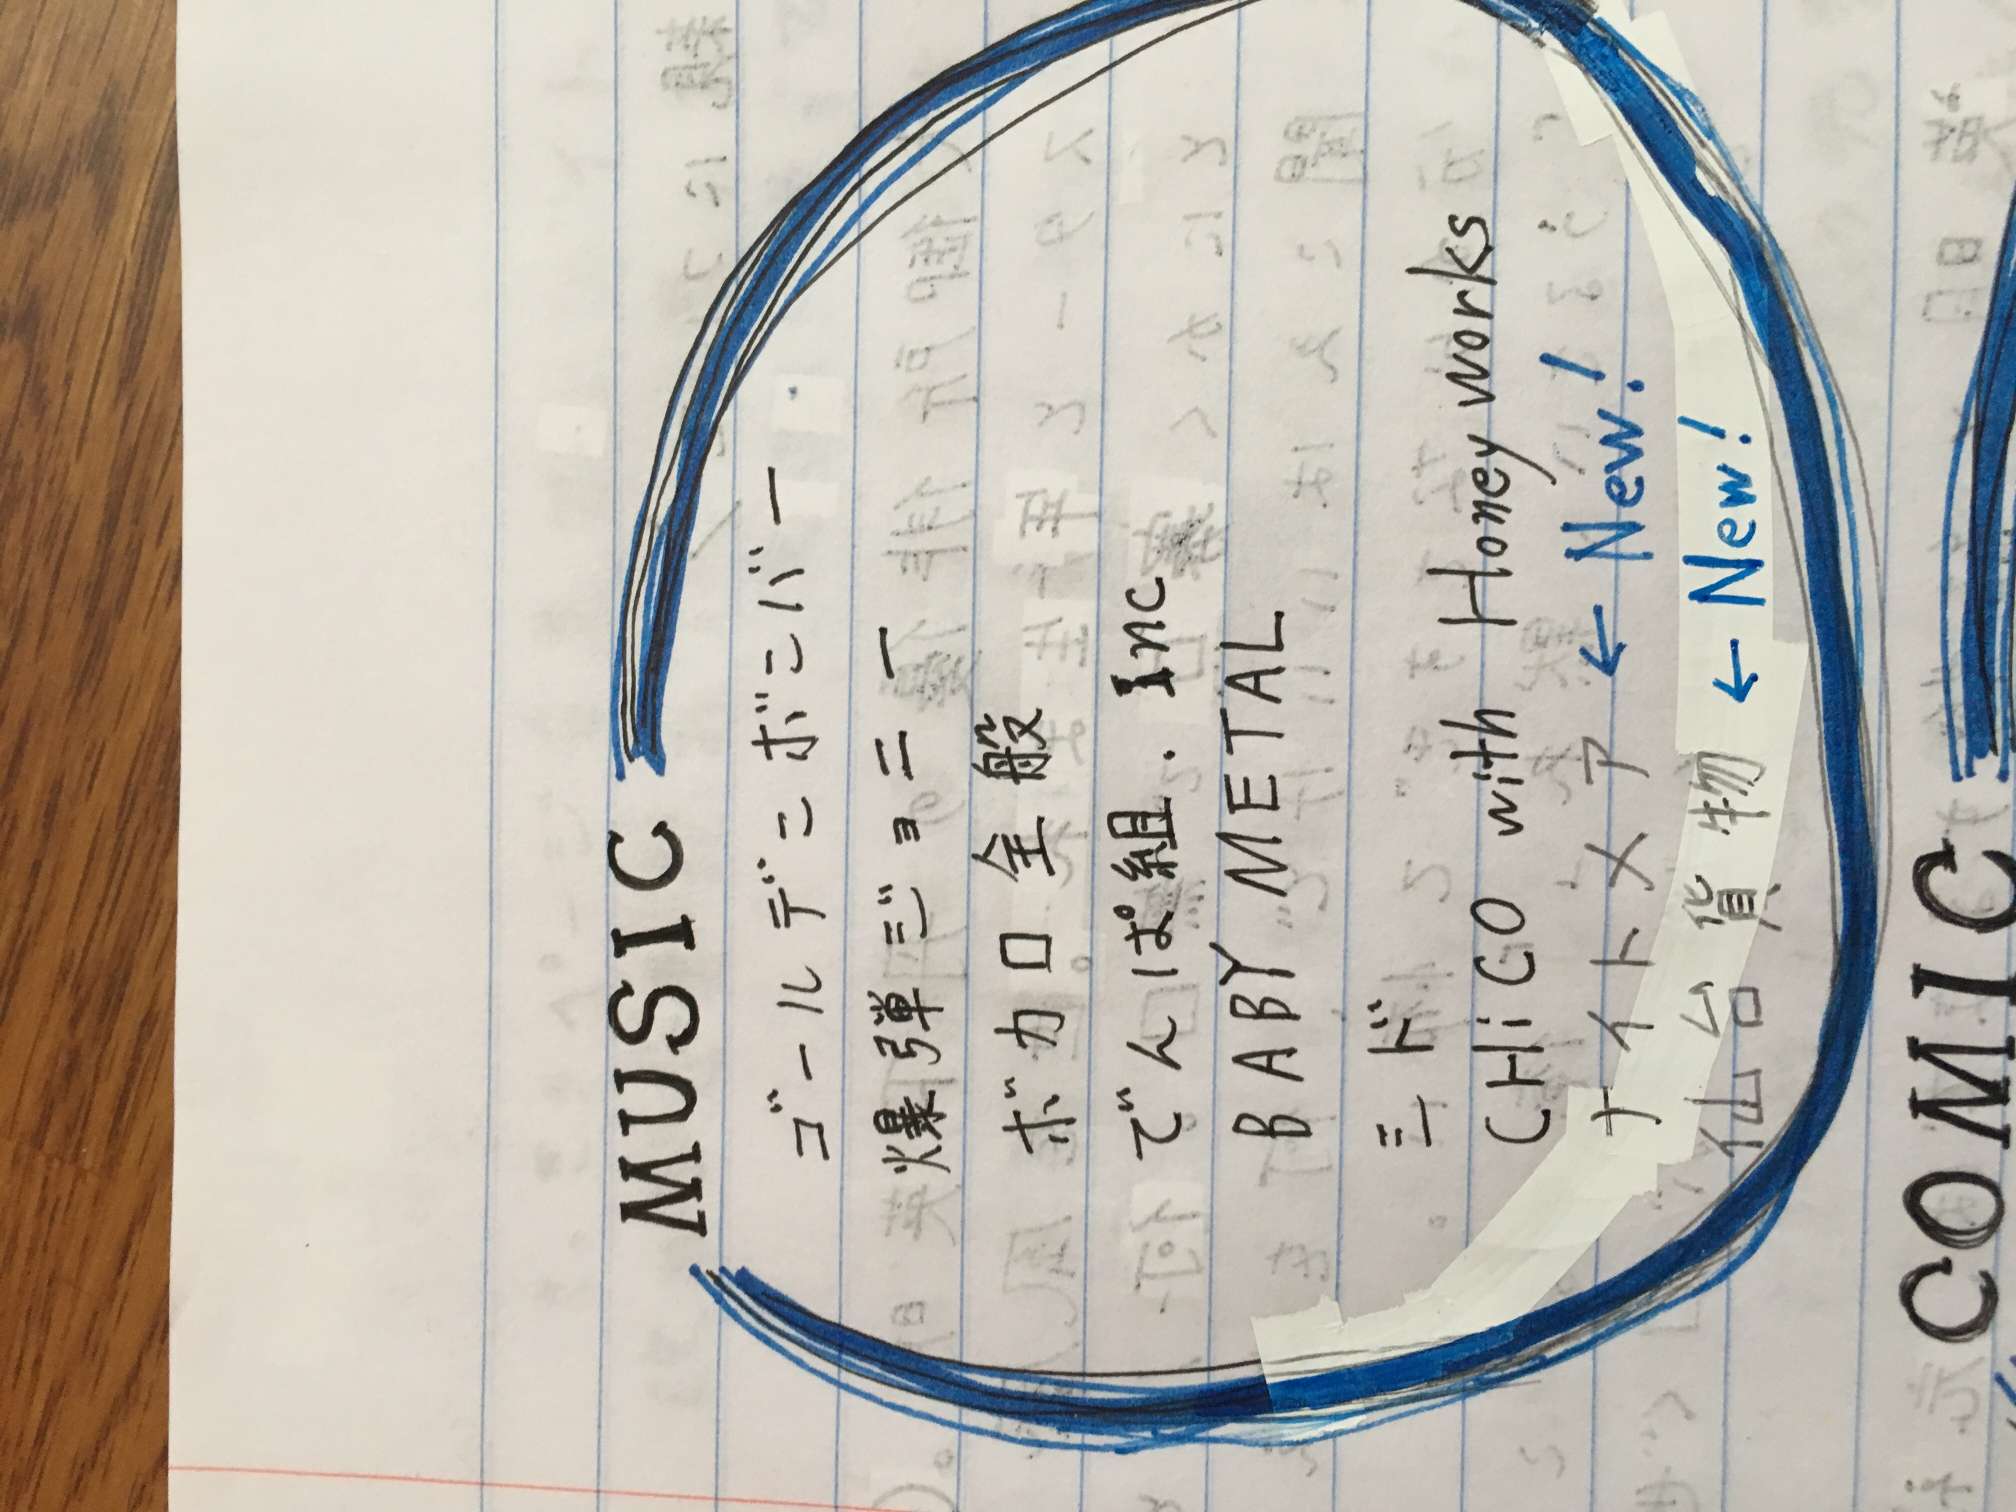 MUSIC
ゴールデンボンバー
爆弾ジョニー
ボカロ全般
でんぱ組.Inc
BABY METAL
シド
CHiCO with Honey works
ナイトメア ← New!
仙台貨物 ← New!
COMIC